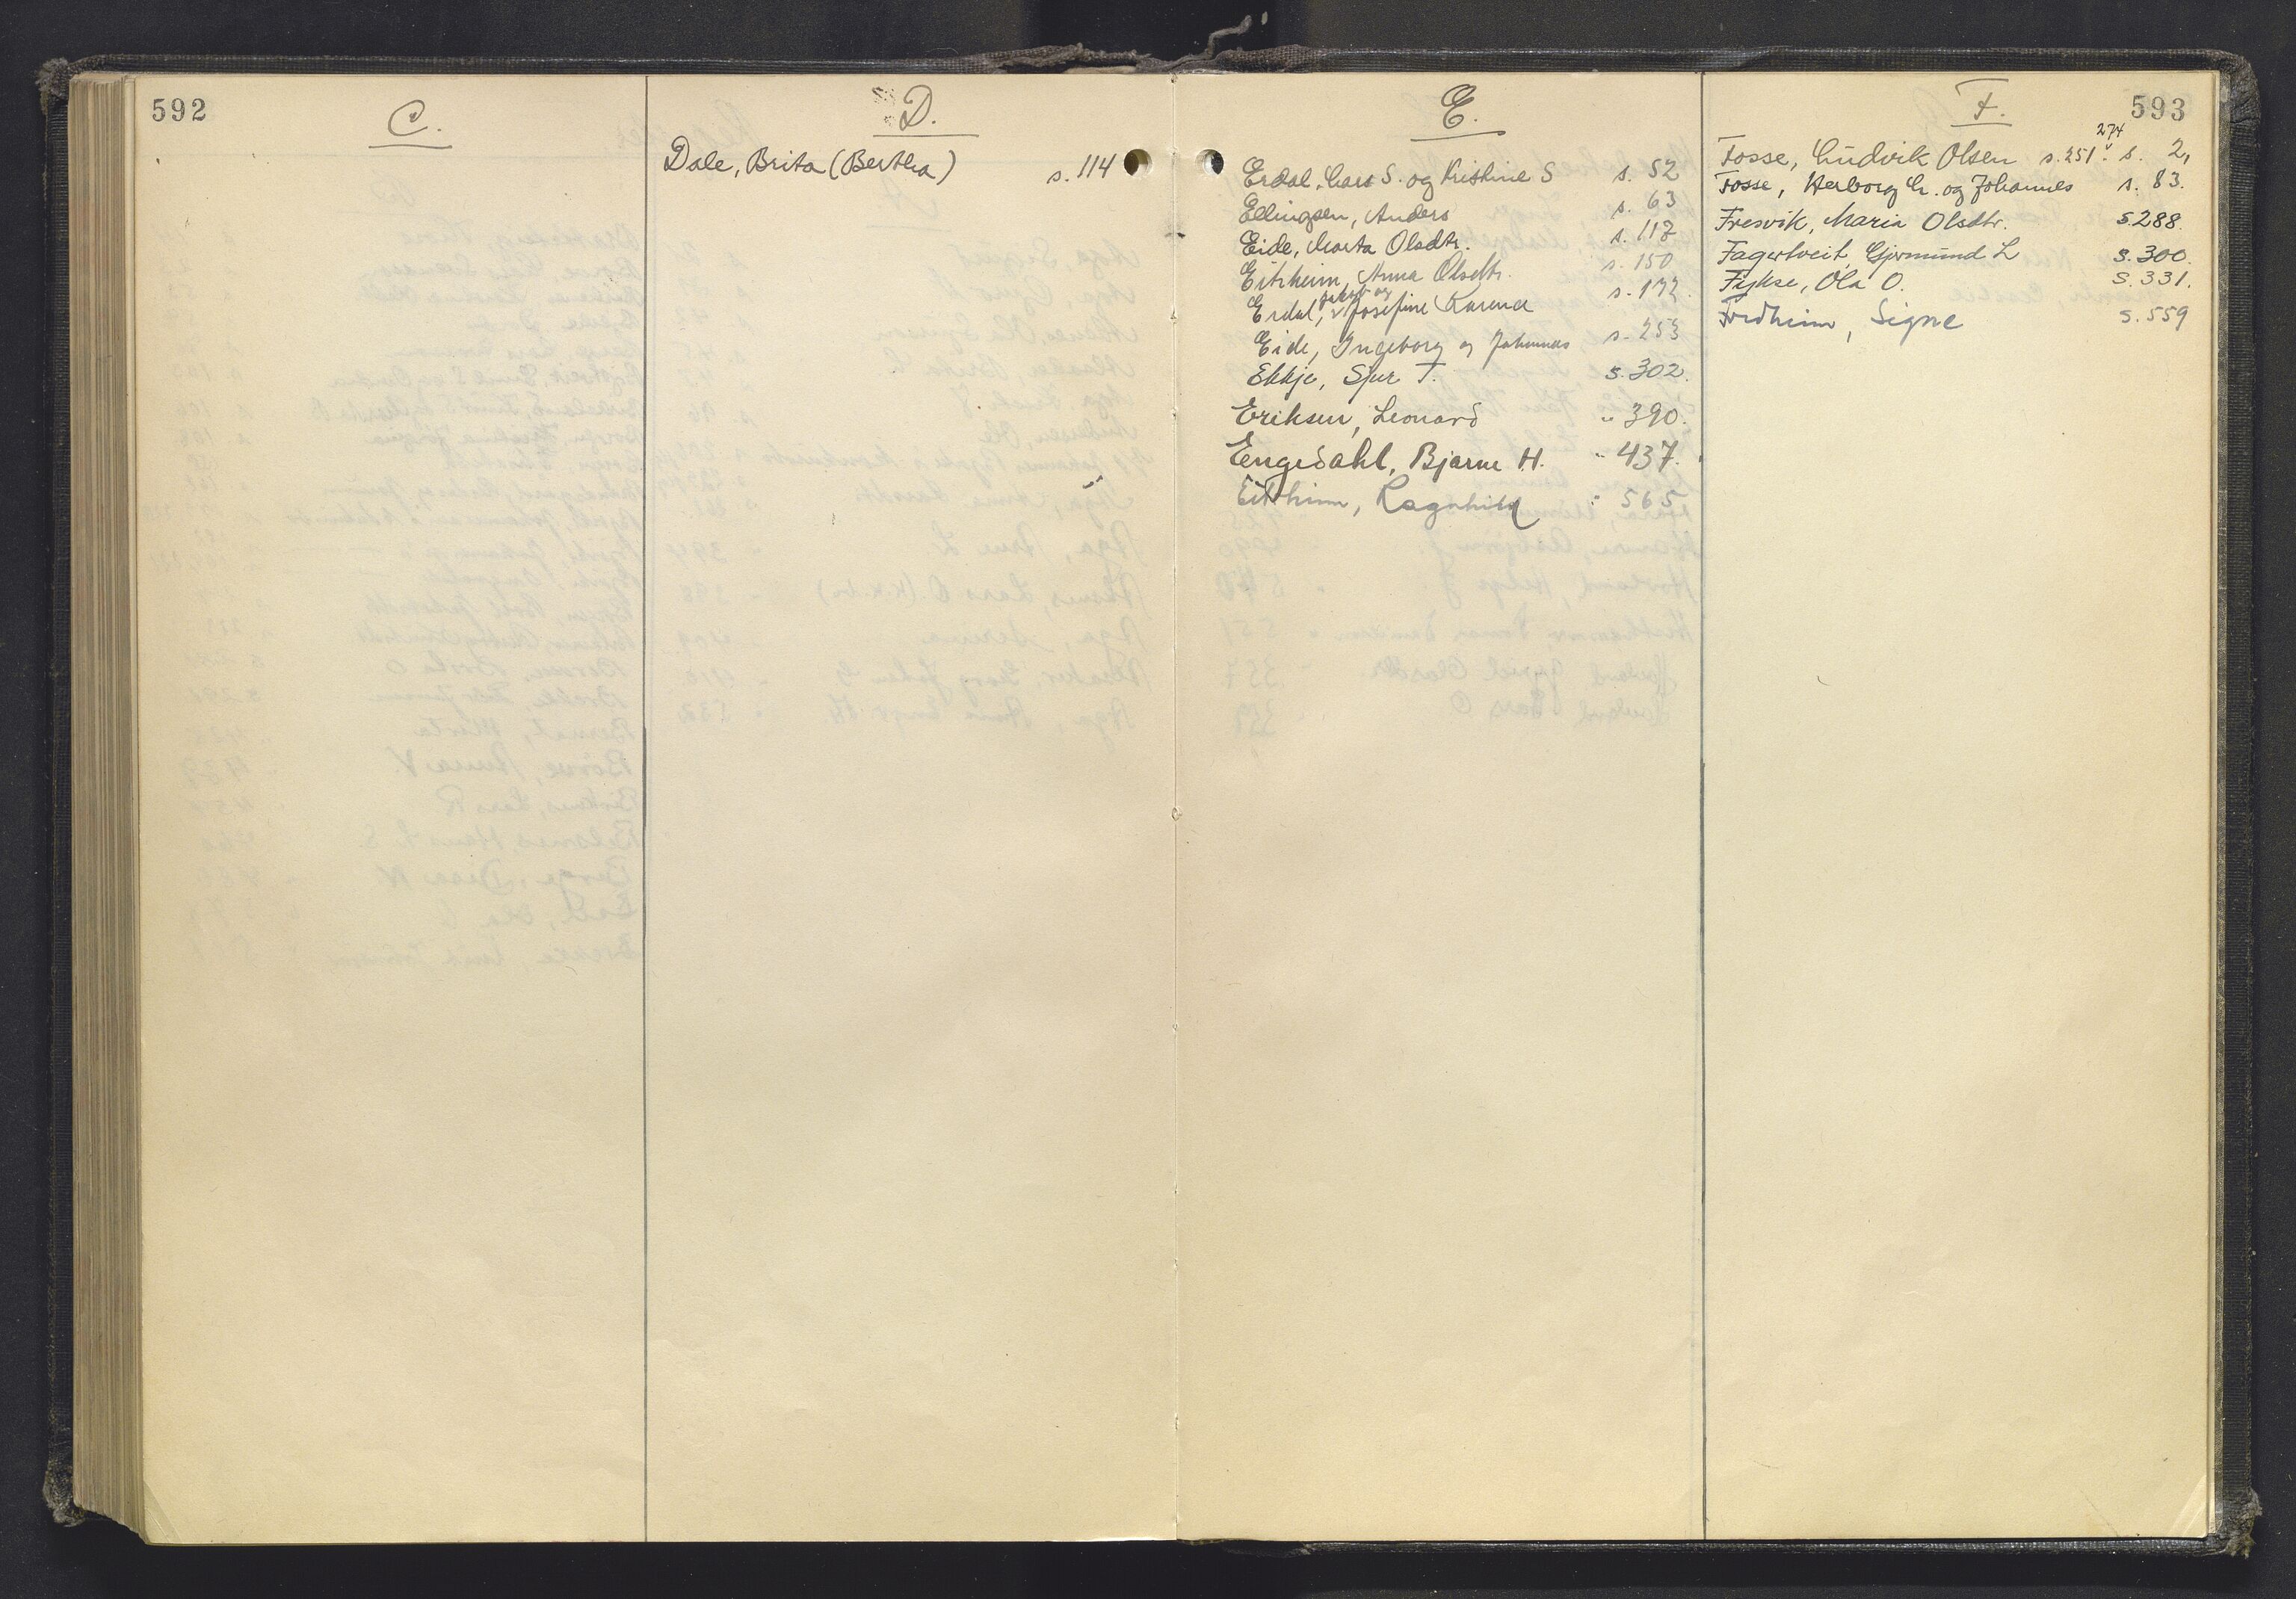 592
C.
D.
Dale, Brita (Bertha) s. 114
E.
Erdal, Lars S. og Kristine S s. 52
Ellingsen, Anders s. 63
Eide, Marta Olsdtr. s. 117
Eitrheim, Anna Olsdtr. s. 150
Erdal, Jakob og Josefine Karena s. 172.
Eide, Ingeborg og Johannes s. 253
Ekkje, Sjur T. s. 302.
Eriksen, Leonard " 390.
Engedahl, Bjarne H. " 437.
Eitrheim, Ragnhild " 565
F.
593
274
Fosse, Ludvik Olsen s. 251. s. 2,
Fosse, Herborg L. og Johannes s. 83.
Fresvik, Maria Olsdtr. s. 288.
Fagertveit, Gjermund L s. 300.
Fykse, Ola O. s. 331.
Fordheim, Signe s. 559